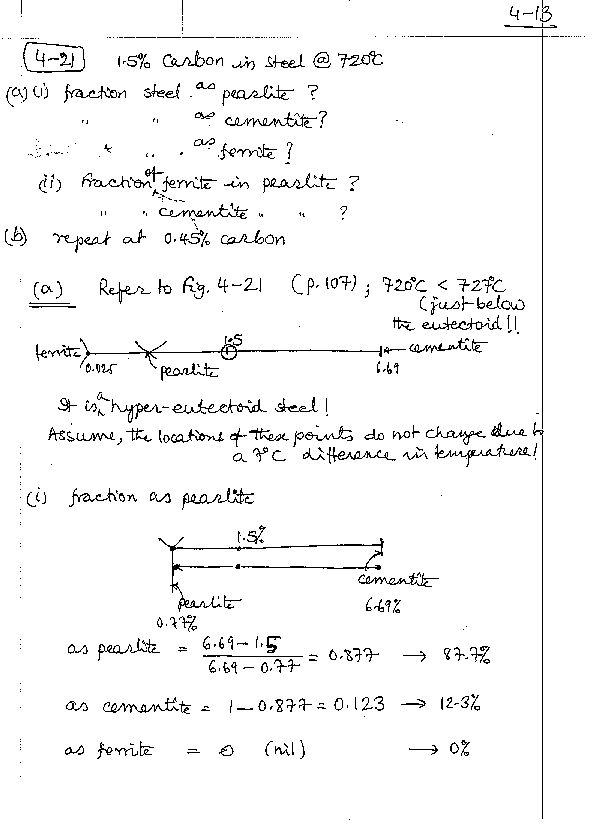 4-13
4-21 1.5% Carbon in steel @ 720°C
(a) (i) fraction steel as pearlite ?
" " as cementite?
" " as ferrite?
(ii) fraction of ferrite in pearlite ?
" " cementite " " ?
(b) repeat at 0.45% carbon
(a) Refer to Fig. 4-21 (p. 107) ; 720°C < 727°C
(just below
the eutectoid!!
1.5
ferrite cementite
0.025 pearlite 6.69
It is a hyper-eutectoid steel!
Assume, the locations of these points do not change due to
a 7°C difference in temperature!
(i) fraction as pearlite
1.5%
cementite
pearlite 6.69%
0.77%
as pearlite = 6.69-1.5 / 6.69-0.77 = 0.877 → 87.7%
as cementite = 1-0.877 = 0.123 → 12.3%
as ferrite = 0 (nil) → 0%